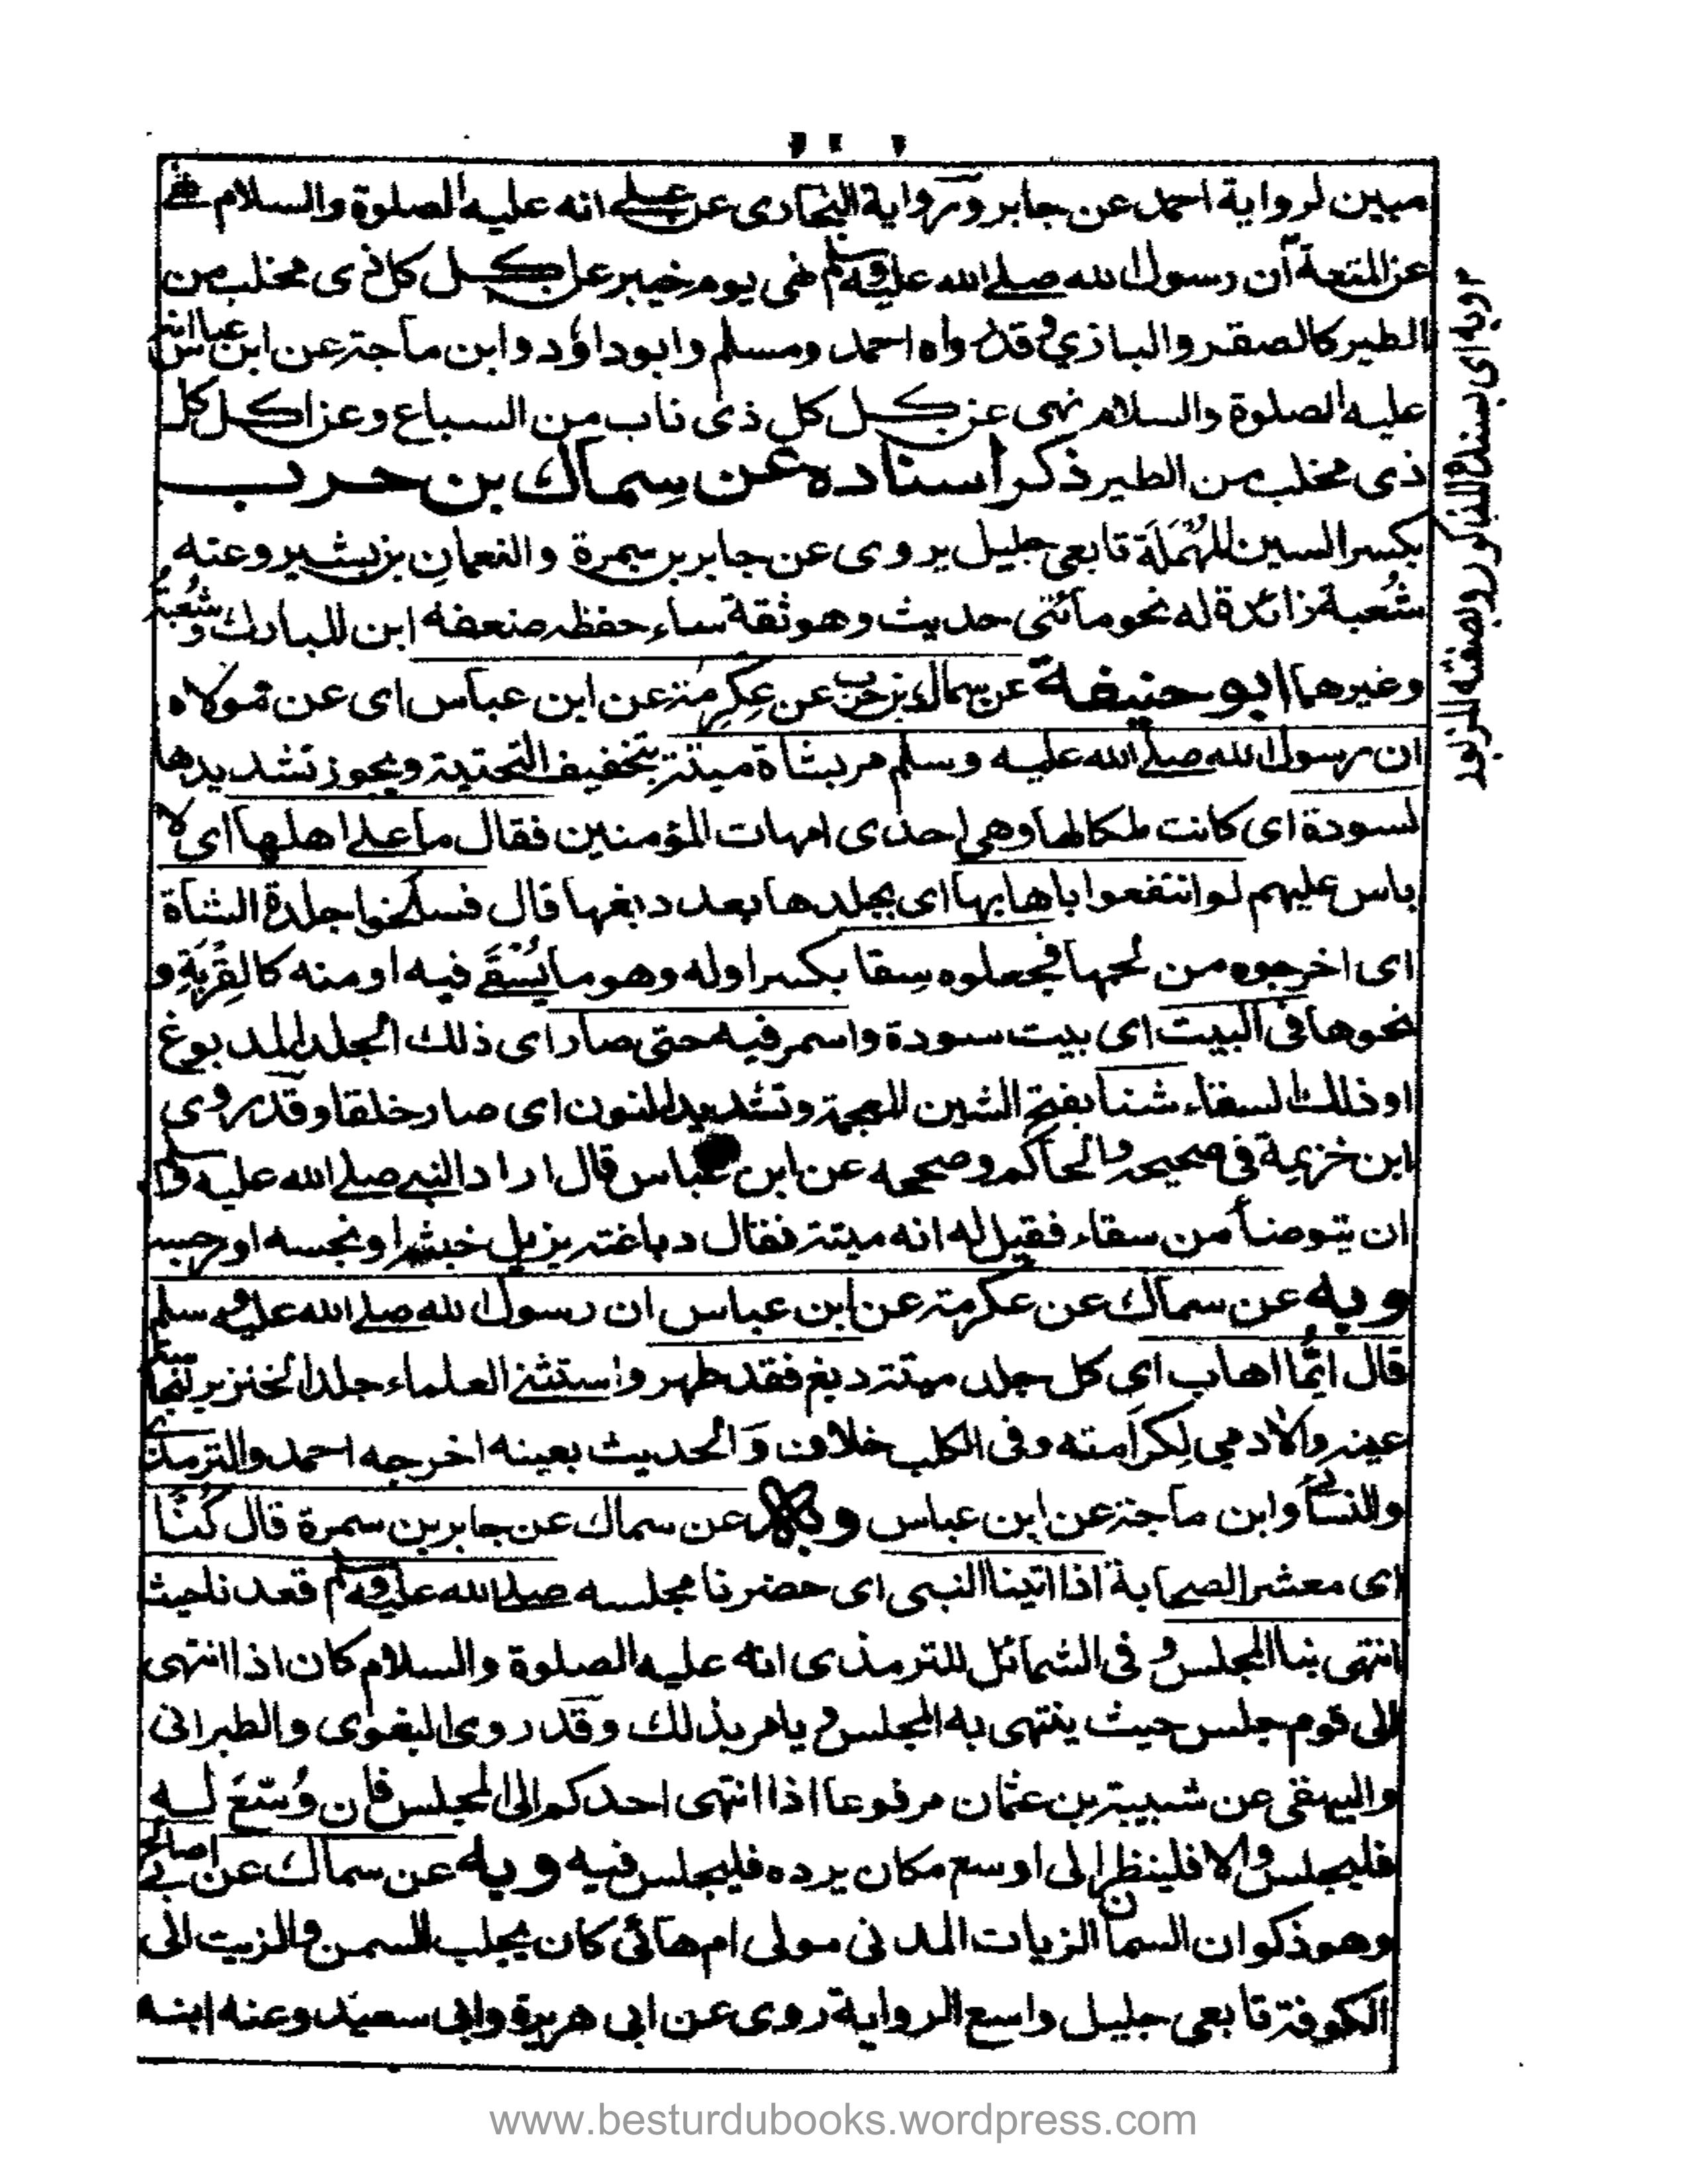 مبين لرواية احمد عن جابر ورواية البخارى عن على انه عليه الصلوة والسلام نهى
عن المتعة أن رسول الله صلى الله عليه وسلم نهى يوم خيبر عن اكل كل ذى مخلب من
الطير كالصقر والبازي وقد رواه احمد ومسلم وابوداؤد وابن ماجة عن ابن عباس انه
عليه الصلوة والسلام نهى عن اكل كل ذى ناب من السباع وعن اكل كل
ذى مخلب من الطير ذكر اسناده عن سماك بن حرب
بكسر السين المهملة تابعى جليل يروى عن جابر بن سمرة والنعمان بن بشير وعنه
شعبة زائدة له نحو مائتى حديث وهو ثقة ساء حفظه ضعفه ابن المبارك وشعبة
وغيرهما ابو حنيفة عن سماك بن حرب عن عكرمة عن ابن عباس اى عن مولاه
ان رسول الله صلى الله عليه وسلم مر بشاة ميتة بتخفيف التحتية ويجوز تشديدها
لسودة اى كانت ملكا لها وهى احدى امهات المؤمنين فقال ما على اهلها اى لا
باس عليهم لو انتفعوا باهابها اى بجلدها بعد دبغها قال فسلخوا جلدة الشاة
اى اخرجوه من لحمها فجعلوه سقا بكسر اوله وهو ما يُسْقَے فيه او منه كالقِرْبَةِ و
نحوها فى البيت اى بيت سودة واسمر فيه حتى صار اى ذلك الجلد المدبوغ
او ذلك السقاء شنا بفتح الشين المعجمة وتشديد النون اى صار خلقا وقد روى
ابن خزيمة فى صحيحه والحاكم وصححه عن ابن عباس قال اراد النبى صلى الله عليه وسلم
ان يتوضأ من سقاء فقيل له انه ميتة فقال دباغته يزيل خبثه او نجسه او رجسه
وبه عن سماك عن عكرمة عن ابن عباس ان رسول الله صلى الله عليه وسلم
قال ايُّما اهاب اى كل جلد ميتة دبغ فقد طهر واستثنى العلماء جلد الخنزير لنجاسة
عينه والآدمي لكرامته وفى الكلب خلاف وَالحديث بعينه اخرجه احمد والترمذي
والنسائي وابن ماجة عن ابن عباس وبه عن سماك عن جابر بن سمرة قال كُنَّا
اى معشر الصحابة اذا اتينا النبى اى حضرنا مجلسه صلى الله عليه وسلم قعدنا حيث
انتهى بنا المجلس و فى الشمائل للترمذى انه عليه الصلوة والسلام كان اذا انتهى
الى قوم جلس حيث ينتهى به المجلس و يامر بذلك وقد روى البغوى والطبرانى
والبيهقى عن شيبة بن عثمان مرفوعا اذا انتهى احدكم الى المجلس فان وُسِّعَ له
فليجلس والا فلينظر الى اوسع مكان يرده فليجلس فيه وبه عن سماك عن ابى صالح
وهو ذكوان السمان الزيات المدنى مولى ام هانئ كان يجلب السمن والزيت الى
الكوفة تابعى جليل واسع الرواية روى عن ابى هريرة وابى سعيد وعنه ابنه
وبه اى بسنده المذكور
www.besturdubooks.wordpress.com